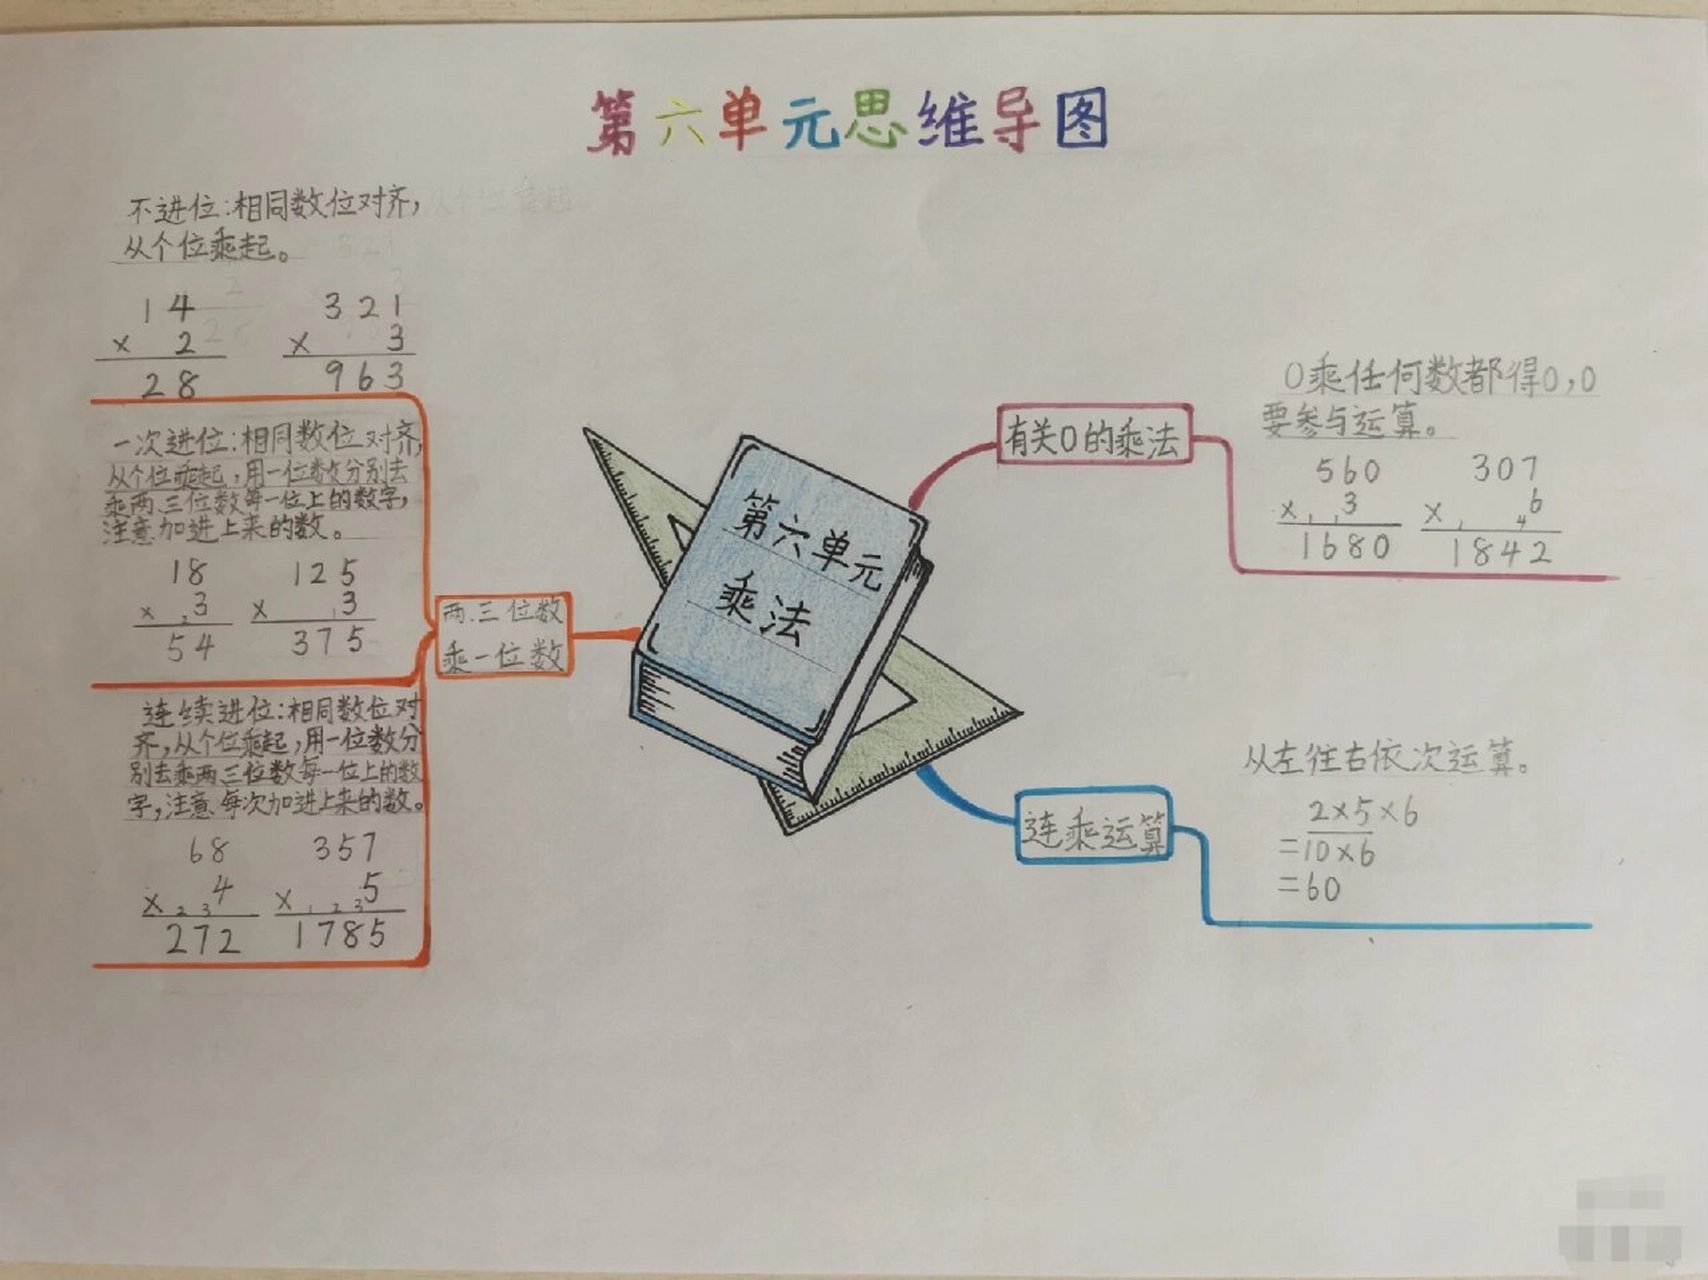 第六单元思维导图
不进位:相同数位对齐,
从个位乘起。
14
× 2
28
321
× 3
963
一次进位:相同数位对齐,
从个位乘起,用一位数分别去
乘两.三位数每一位上的数字,
注意加进上来的数。
18
× 2 3
54
125
× 1 3
375
连续进位:相同数位对
齐,从个位乘起,用一位数分
别去乘两三位数每一位上的数
字,注意每次加进上来的数。
68
× 2 3 4
272
357
× 1 2 3 5
1785
两.三位数
乘一位数
第六单元
乘法
有关0的乘法
0乘任何数都得0,0
要参与运算。
560
× 1 1 3
1680
307
× 1 4 6
1842
连乘运算
从左往右依次运算。
2×5×6
=10×6
=60